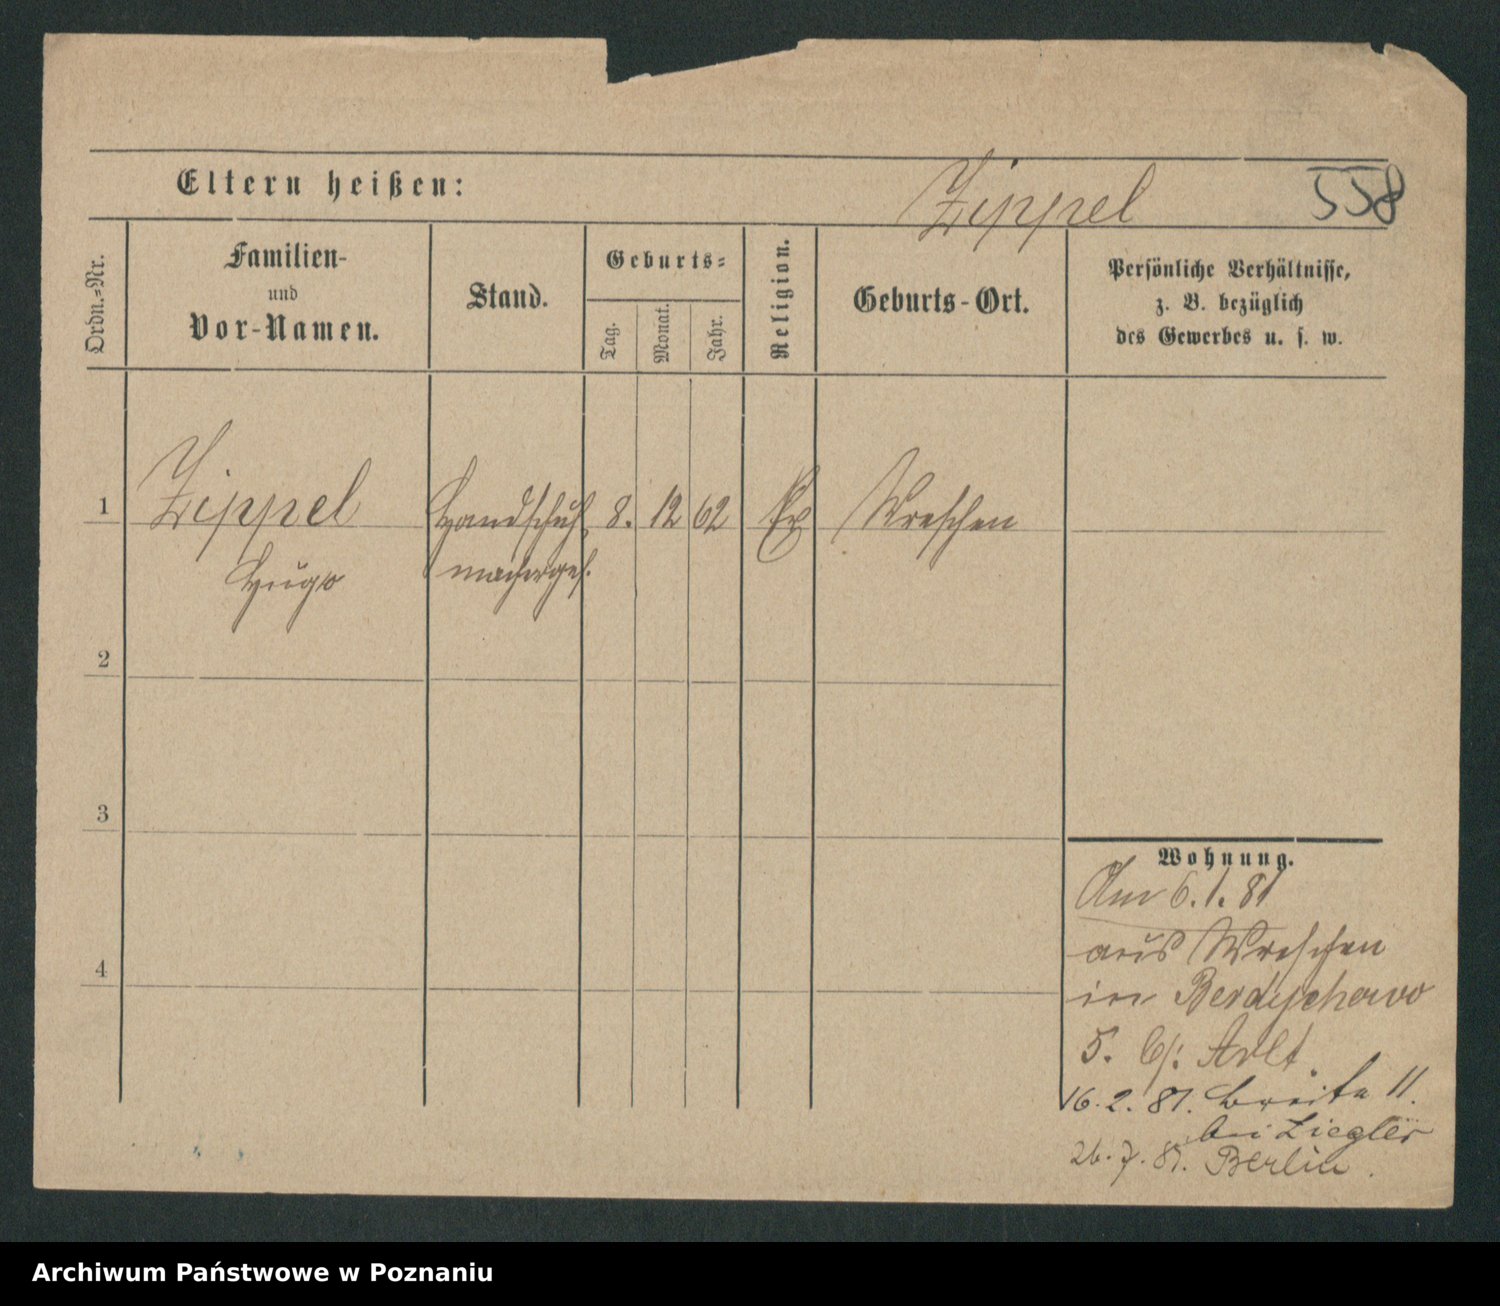 Eltern heißen:
Zippel
558
Ordn.-Nr.
Familien-
und
Vor-Namen.
Stand.
Geburts-
Tag.
Monat.
Jahr.
Religion.
Geburts-Ort.
Persönliche Verhältnisse,
z. B. bezüglich
des Gewerbes u. s. w.
1
Zippel
Handschuh
8.
12
62
Ev
Wreschen
Hugo
machergeh.
2
3
4
Wohnung.
Am 6.1.81
aus Wreschen
in Berdychowo
5. b/. Arlt
16.2.81. Breite 11.
bei Ziegler
26.7.81. Berlin.
Archiwum Państwowe w Poznaniu